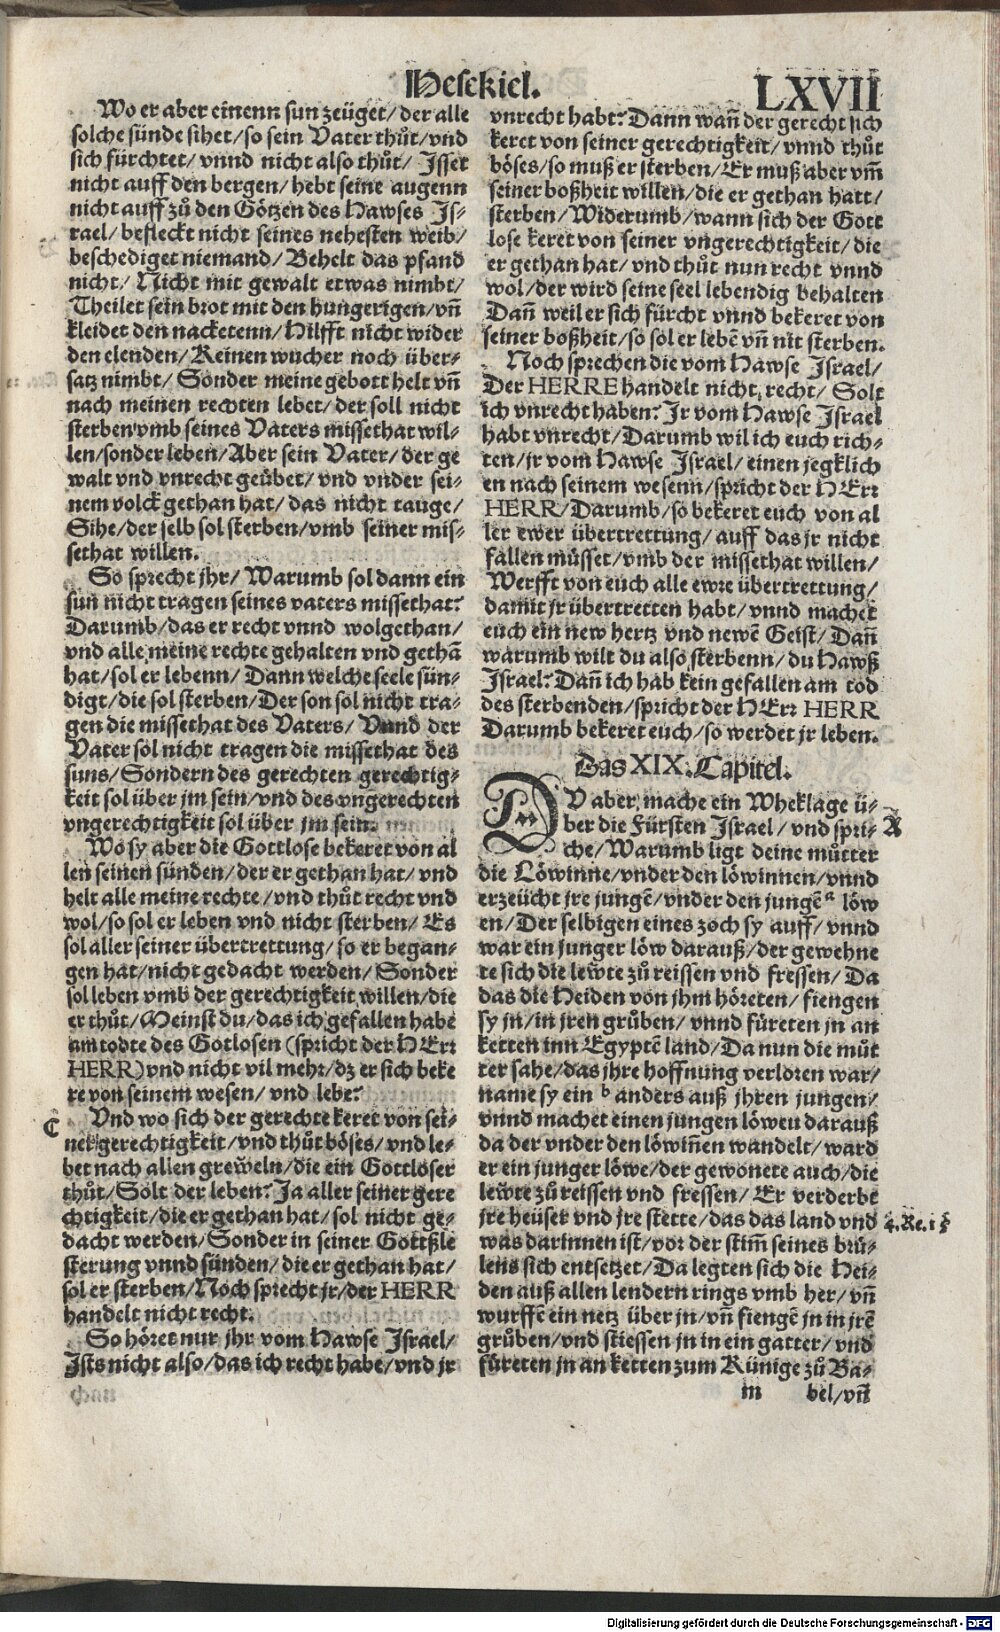 Hesekiel. LXVII
Wo er aber einenn sun zeüget/ der alle
solche sünde sihet/ so sein Vater thůt/ vnd
sich fürchtet/ vnnd nicht also thůt/ Isset
nicht auff den bergen/ hebt seine augenn
nicht auff zů den Götzen des Hawses Js⸗
rael/ befleckt nicht seines nehesten weib/
beschediget niemand/ Behelt das pfand
nicht/ Nicht mit gewalt etwas nimbt/
Theilet sein brot mit den hungerigen/ vñ
kleidet den nacketenn/ Hilfft nicht wider
den elenden/ Keinen wucher noch über⸗
satz nimbt/ Sonder meine gebott helt vñ
nach meinen rechten lebet/ der soll nicht
sterben vmb seines Vaters missethat wil⸗
len/ sonder leben/ Aber sein Vater/ der ge
walt vnd vnrecht geübet/ vnd vnder sei⸗
nem volck gethan hat/ das nicht tauge/
Sihe/ der selb sol sterben/ vmb seiner mis⸗
sethat willen.
So sprecht jhr/ Warumb sol dann ein
sun nicht tragen seines vaters missethat?
Darumb/ das er recht vnnd wolgethan/
vnd alle meine rechte gehalten vnd gethā
hat/ sol er lebenn/ Dann welche seele sün⸗
digt/ die sol sterben/ Der son sol nicht tra⸗
gen die missethat des Vaters/ Vnnd der
Vater sol nicht tragen die missethat des
suns/ Sondern des gerechten gerechtig⸗
keit sol über jm sein/ vnd des vngerechten
vngerechtigkeit sol über jm sein.
Wo sy aber die Gottlose bekeret von al
len seinen sünden/ der er gethan hat/ vnd
helt alle meine rechte/ vnd thůt recht vnd
wol/ so sol er leben vnd nicht sterben/ Es
sol aller seiner übertrettung/ so er began⸗
gen hat/ nicht gedacht werden/ Sonder
sol leben vmb der gerechtigkeit willen/ die
er thůt/ Meinst du/ das ich gefallen habe
am todte des Gotlosen (spricht der HErr
HERR) vnd nicht vil mehr/ dz er sich beke
re von seinem wesen/ vnd lebe?
C Vnd wo sich der gerechte keret von sei⸗
ner gerechtigkeit/ vnd thůt böses/ vnd le⸗
bet nach allen greweln/ die ein Gottloser
thůt/ Solt der leben? Ja aller seiner gere
chtigkeit/ die er gethan hat/ sol nicht ge⸗
dacht werden/ Sonder in seiner Gottßle
sterung vnnd sünden/ die er gethan hat/
sol er sterben/ Noch sprecht jr/ der HERR
handelt nicht recht.
So höret nur jhr vom Hawse Israel/
Ists nicht also/ das ich recht habe/ vnd jr
vnrecht habt? Dann wañ der gerecht sich
keret von seiner gerechtigkeit/ vnnd thůt
böses/ so muß er sterben/ Er muß aber vm̃
seiner boßheit willen/ die er gethan hatt/
sterben/ Widerumb/ wann sich der Gott
lose keret von seiner vngerechtigkeit/ die
er gethan hat/ vnd thůt nun recht vnnd
wol/ der wird seine seel lebendig behalten
Dañ weil er sich fürcht vnnd bekeret von
seiner boßheit/ so sol er lebē vñ nit sterben.
Noch sprechen die vom Hawse Israel/
Der HERRE handelt nicht recht/ Solt
ich vnrecht haben? Jr vom Hawse Israel
habt vnrecht/ Darumb wil ich euch rich⸗
ten/ jr vom Hawse Israel/ einen jegklich
en nach seinem wesenn/ spricht der HErr
HERR/ Darumb/ so bekeret euch von al
ler ewer übertrettung/ auff das jr nicht
fallen müsset/ vmb der missethat willen/
Werfft von euch alle ewre übertrettung/
damit jr übertretten habt/ vnnd machet
euch ein new hertz vnd newē Geist/ Dañ
warumb wilt du also sterbenn/ du Hawß
Israel? Dañ ich hab kein gefallen am tod
des sterbenden/ spricht der HErr HERR
Darumb bekeret euch/ so werdet jr leben.
Das XIX. Capitel.
DV aber mache ein Wheklage ü⸗
ber die Fürsten Israel/ vnd spri⸗ A
che/ Warumb ligt deine můtter
die Löwinne/ vnder den löwinnen/ vnnd
erzeücht jre jungē/ vnder den jungē ᵃ löw
en/ Der selbigen eines zoch sy auff/ vnnd
war ein junger löw darauß/ der gewehne
te sich die lewte zů reissen vnd fressen/ Da
das die Heiden von jhm höreten/ fiengen
sy jn/ in jren grůben/ vnnd füreten jn an
ketten inn Egyptē land/ Da nun die můt
ter sahe/ das jhre hoffnung verloren war/
name sy ein ᵇ anders auß jhren jungen/
vnnd machet einen jungen löwen darauß
da der vnder den löwiñen wandelt/ ward
er ein junger löwe/ der gewonete auch/ die
lewte zů reissen vnd fressen/ Er verderbt
jre heüser vnd jre stette/ das das land vnd 4. Re.
was darinnen ist/ vor der stim̃ seines brü⸗
lens sich entsetzet/ Da legten sich die Hei⸗
den auß allen lendern rings vmb her/ vñ
wurffē ein netz über jn/ vñ fiengē jn in jrē
grůben/ vnd stiessen jn in ein gatter/ vnd
füreten jn an ketten zum Künige zů Ba⸗
m bel/ vñ
Digitalisierung gefördert durch die Deutsche Forschungsgemeinschaft - DFG